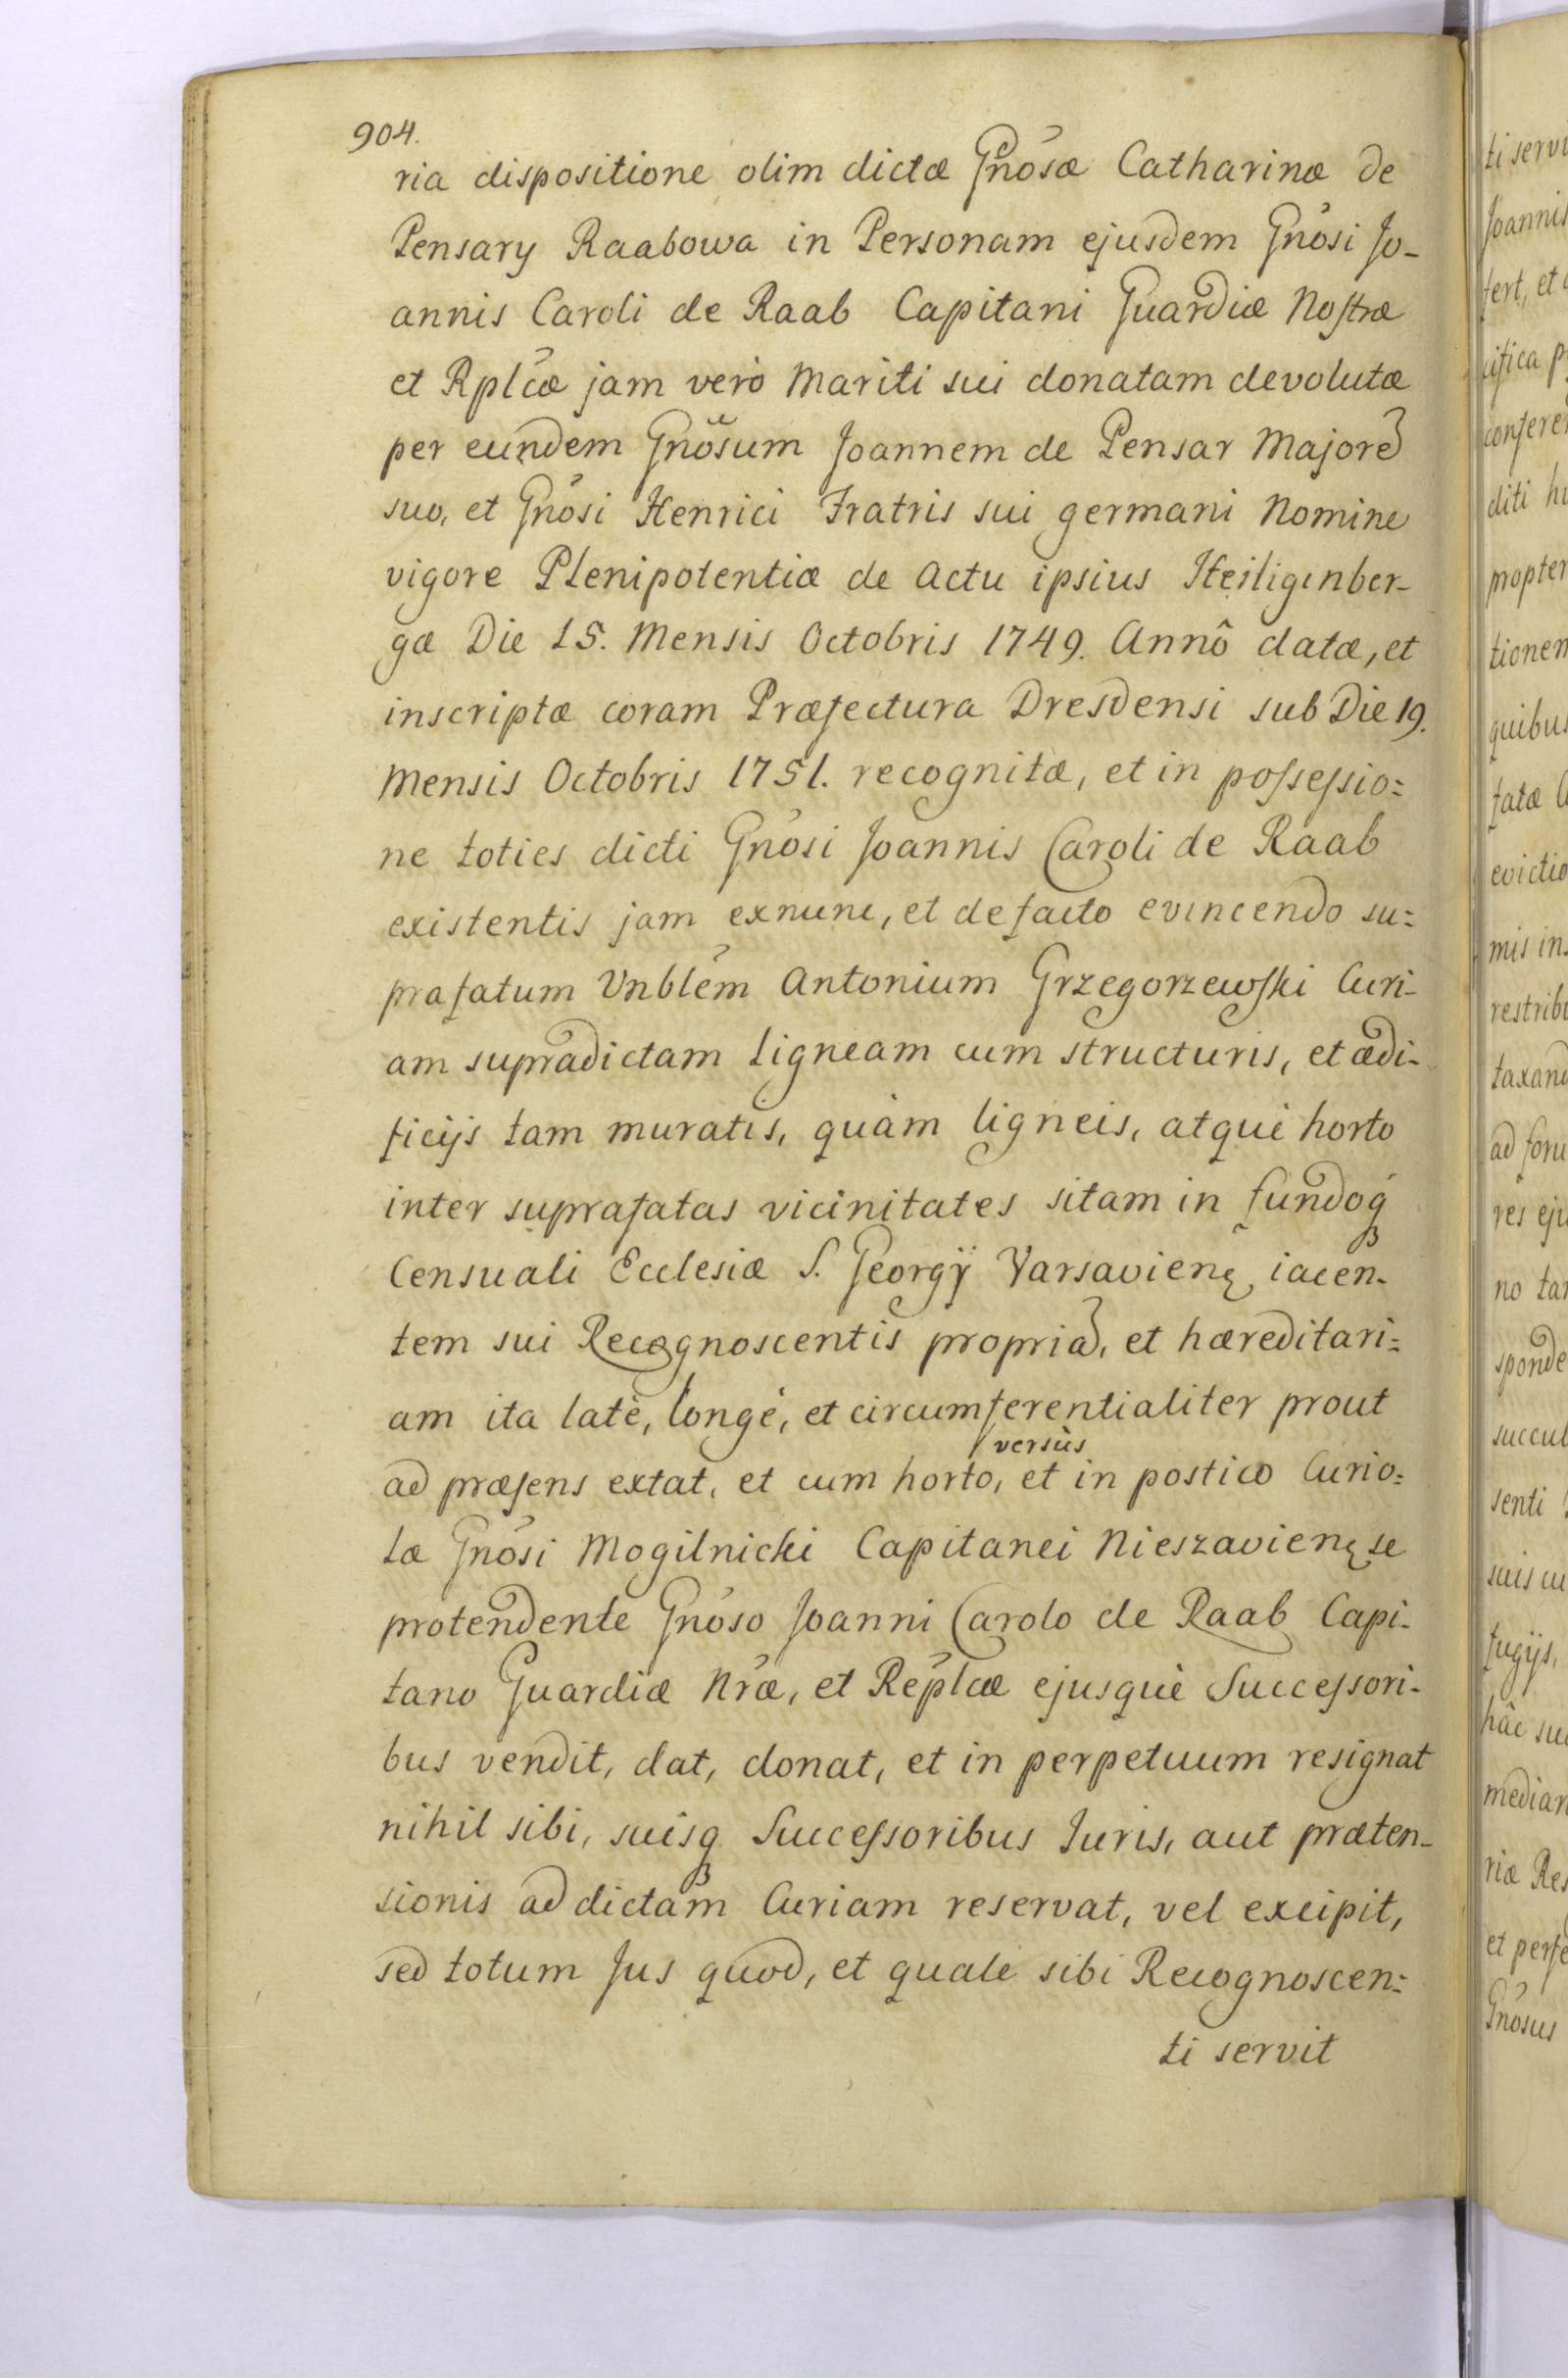 904.
ria dispositione olim dictæ Gnősæ Catharinæ de
Pensary Raabowa in Personam ejusdem Gnősi Jo-
annis Caroli de Raab Capitani Guardiæ Nostræ
et Rplcæ jam verò Mariti sui donatam devolutæ
per eundem Gnősum Joannem de Pensar Majorē
suo, et Gnősi Henrici Fratris sui germani Nomine
vigore Plenipotentiæ de Actu ipsius Heiligenber-
gæ Die 15. Mensis Octobris 1749. Annô datæ, et
inscriptæ coram Præfectura Dresdensi sub Die 19.
Mensis Octobris 1751. recognitæ, et in possessio:
ne toties dicti Gnősi Joannis Caroli de Raab
existentis jam exnunc, et defacto evincendo su:
prafatum Vnblem Antonium Grzegorzewski Curi-
am supradictam Ligneam cum structuris, et ædi-
ficijs tam muratis, quàm ligneis, atquè horto
inter suprafatas vicinitates sitam in fundoq́
Censuali Ecclesiæ S. Georgÿ Varsavienę iacen-
tem sui Recognoscentis propriā, et hæreditari:
am ita latè, longè, et circumferentialiter prout
versùs
ad præsens extat, et cum horto, et in postico Curio:
læ Gnősi Mogilnicki Capitanei Nieszavienę se
protendente Gnőso Joanni Carolo de Raab Capi-
tano Guardiæ Nræ, et Replcæ ejusquè Successori-
bus vendit, dat, donat, et in perpetuum resignat
nihil sibi, suisq Successoribus Juris, aut præten-
sionis ad dictam Curiam reservat, vel excipit,
sed totum Jus quod, et quale sibi Recognoscen:
ti servit